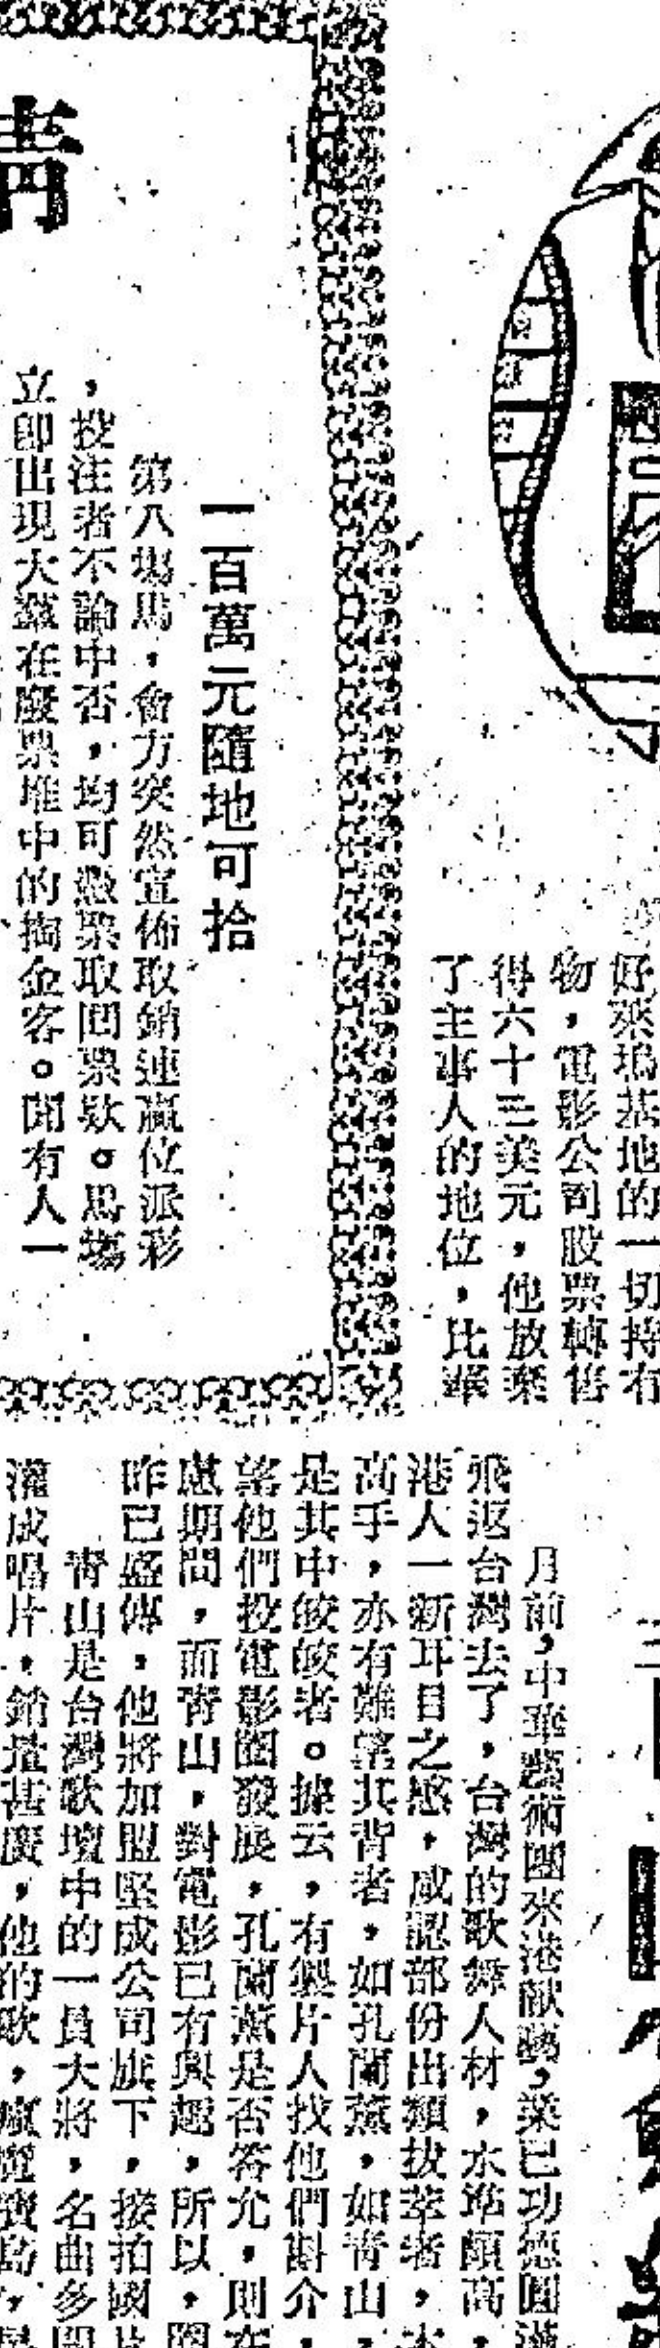 好萊塢基地的一切持有
物，電影公司股票轉售
得六十三美元，他放棄
了主事人的地位，比華
一百萬元隨地可拾
第八塲馬，會方突然宣佈取銷連贏位派彩
，投注者不論中否，均可憑票取回票欵。馬塲
立即出現大羣在廢票堆中的掏金客。聞有人一
月前，中華藝術團來港献藝，業已功德圓滿
飛返台灣去了，台灣的歌舞人材，水準頗高，
港人一新耳目之感，咸認部份出類拔萃者，本
高手，亦有難望其背者，如孔蘭薰，如青山，
是其中皎皎者。據云，有製片人找他們斟介，
望他們投電影圈發展，孔蘭薰是否答允，則在
慮期間，而青山，對電影已有興趣，所以，圈
昨已盛傳，他將加盟堅成公司旗下，接拍國片
青山是台灣歌壇中的一員大將，名曲多
灌成唱片，銷塲甚廣，他的歌，瘋魔寶島，